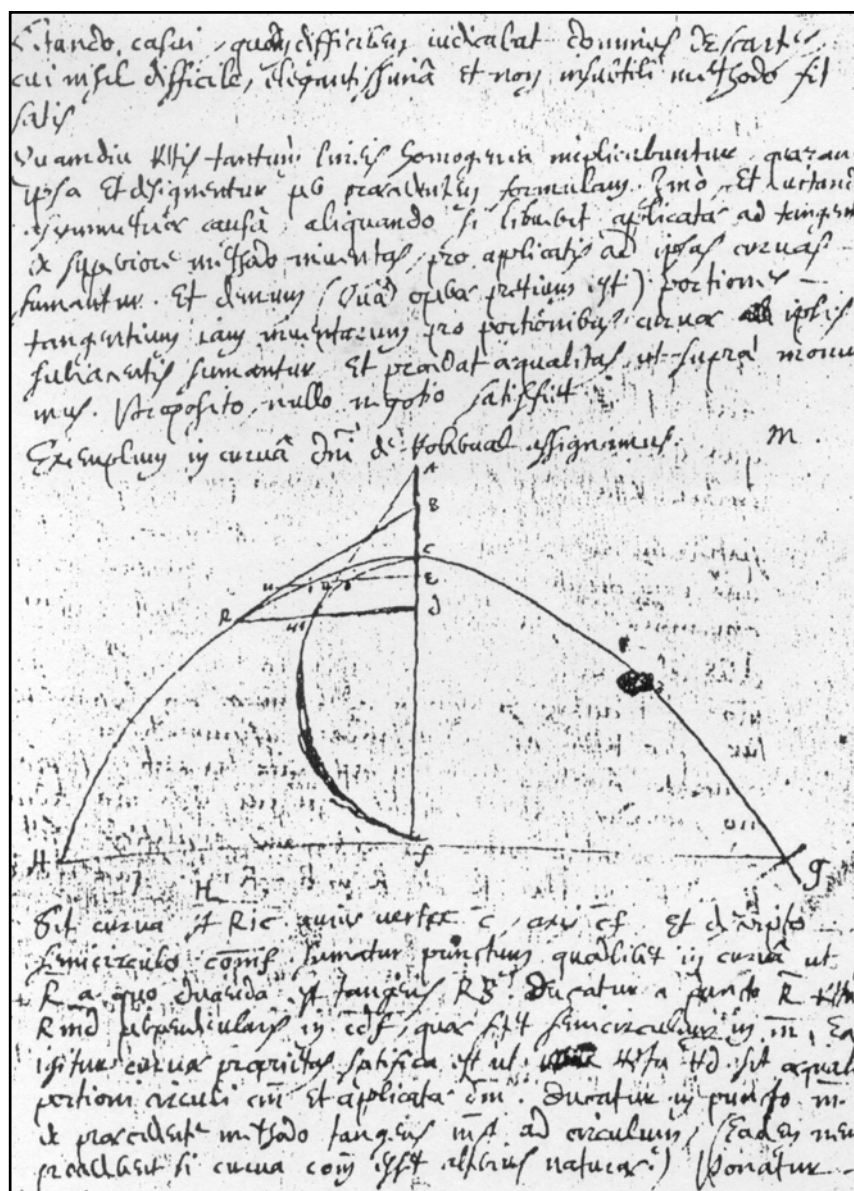 casui, quem difficilem iudicabat dominus descartes
cui nihil difficile, elegantissimâ et non insubtili methodo fit
satis
Quamdiu rectis tantum lineis homogenea implicabuntur, quæran
ipsa et designentur per præcedentem formulam. Imò, et vitand
asymmetriæ causâ, aliquando si libuerit applicatæ ad tangent
ex superiore methodo inventas, pro applicatis ad ipsas curvas
sumantur. Et demum (quod operæ pretium est) portiones
tangentium iam inventarum pro portionibus curvæ ipsis
subiacentis sumantur Et procedat æqualitas, ut suprà monui
mus. Proposito nullo negotio satisfiet.
Exemplum in curvâ dni de Roberval assignamus. M.
A
B
C
E
D
R
F
H f G
Sit curva H R I C cuius vertex C, axis Cf Et descripto
semicirculo comf sumatur punctum quodlibet in curvâ ut
R a quo ducenda est tangens RB. Ducatur a puncto R recta
Rmd perpendicularis in cdf, quæ secet semicirculum in m. Ea
igitur curvæ proprietas est ut recta Rd sit æqual
portioni circuli cm Et applicatæ dm. Ducatur in puncto m
ex præcedente methodo tangens ad circulum, (eadem
si curva com esset alterius naturæ) Ponatur